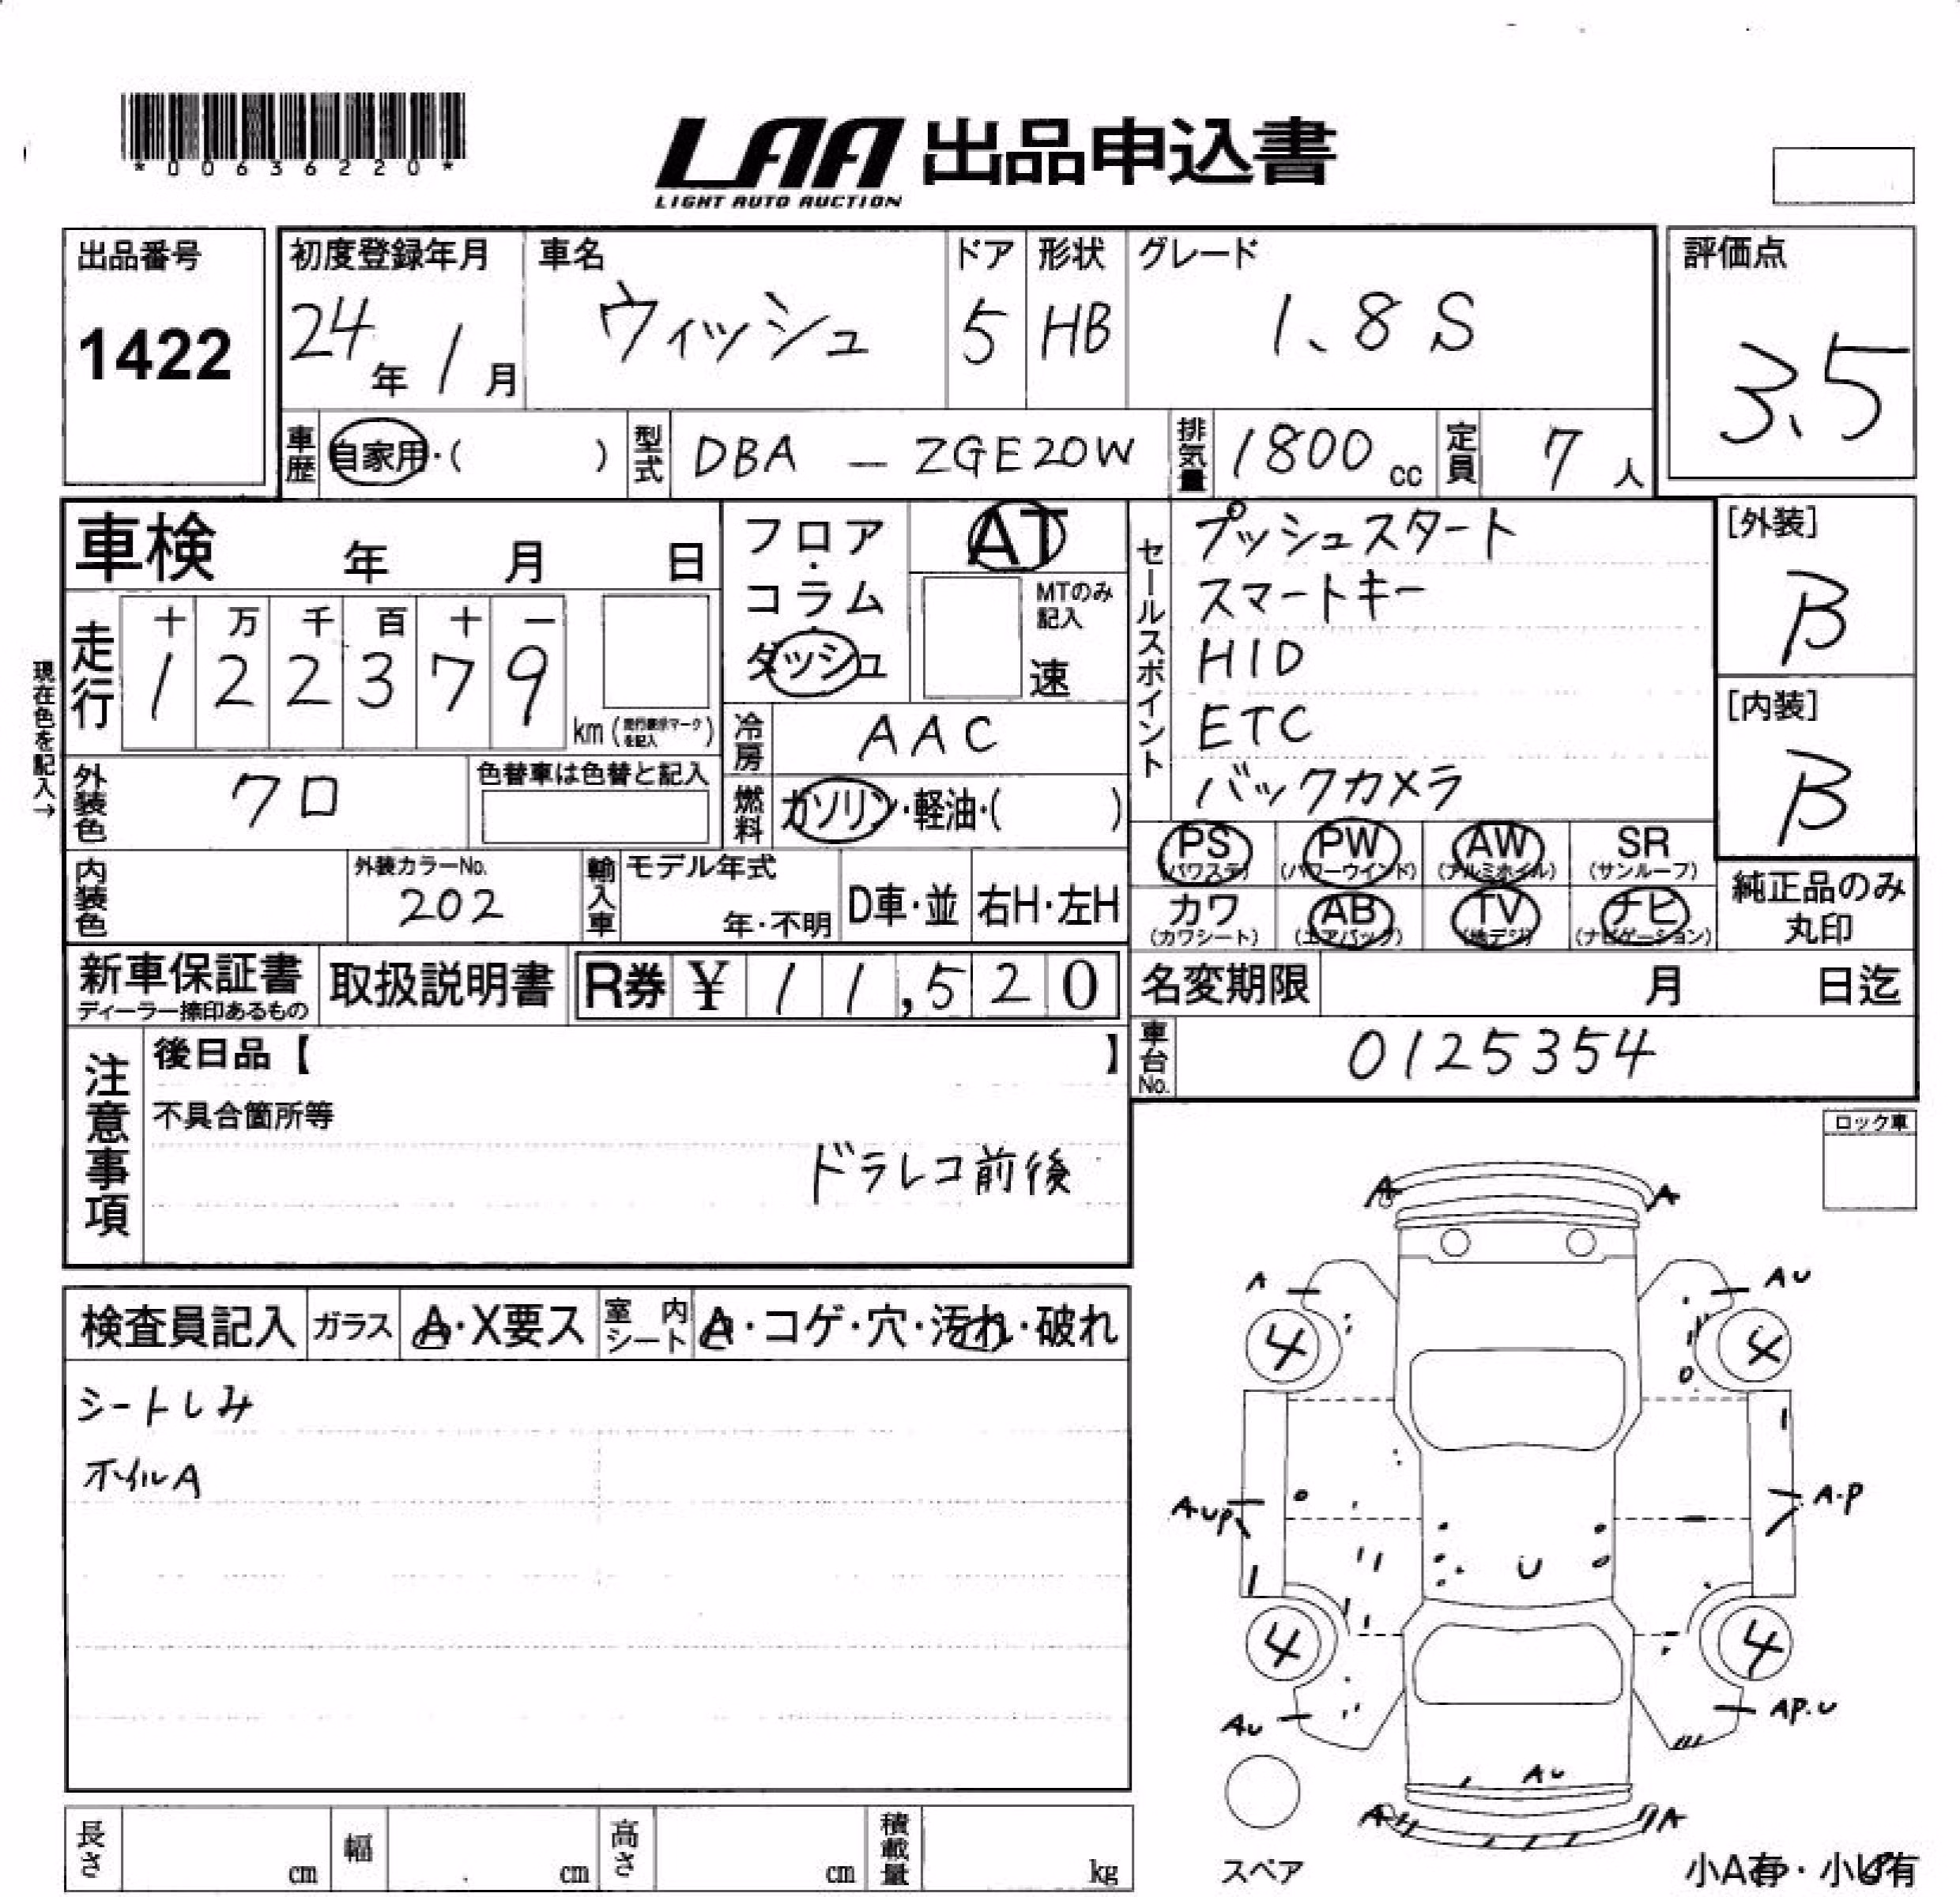 *00636220*
LAA 出品申込書
LIGHT AUTO AUCTION
出品番号
1422
初度登録年月
24年1月
車名
ウィッシュ
ドア
5
形状
HB
グレード
1.8 S
評価点
3.5
車歴
自家用・( )
型式
DBA - ZGE20W
排気量
1800cc
定員
7人
車検 年 月 日
フロア・コラム・ダッシュ
AT
MTのみ記入
速
セールスポイント
プッシュスタート
スマートキー
HID
ETC
バックカメラ
[外装]
B
[内装]
B
現在色を記入→
走行
十 万 千 百 十 一
1 2 2 3 7 9
km(走行表示マークを記入)
冷房
AAC
外装色
クロ
色替車は色替と記入
燃料
ガソリン・軽油・( )
PS
(パワステ)
PW
(パワーウインド)
AW
(アルミホイル)
SR
(サンルーフ)
カワ
(カワシート)
AB
(エアバッグ)
TV
(地デジ)
ナビ
(ナビゲーション)
純正品のみ
丸印
内装色
外装カラーNo.
202
輸入車
モデル年式
年・不明
D車・並
右H・左H
新車保証書
ディーラー捺印あるもの
取扱説明書
R券 ¥ 11,520
名変期限 月 日迄
車台No.
0125354
注意事項
後日品【 】
不具合箇所等
ドラレコ前後
ロック車
検査員記入
ガラス
A・X要ス
室内シート
A・コゲ・穴・汚れ・破れ
シートしみ
ホイルA
A A
A AU
4 4
AUP A・P
U
4 4
AU AP.U
AU
A A
スペア
小A有・小U有
長さ cm
幅 cm
高さ cm
積載量 kg